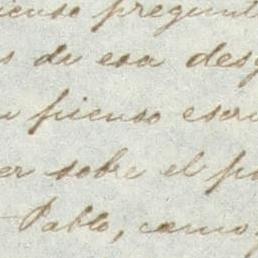 pienso pregunt
s de esa desg
n pienso escri
er sobre el p
Pablo, como